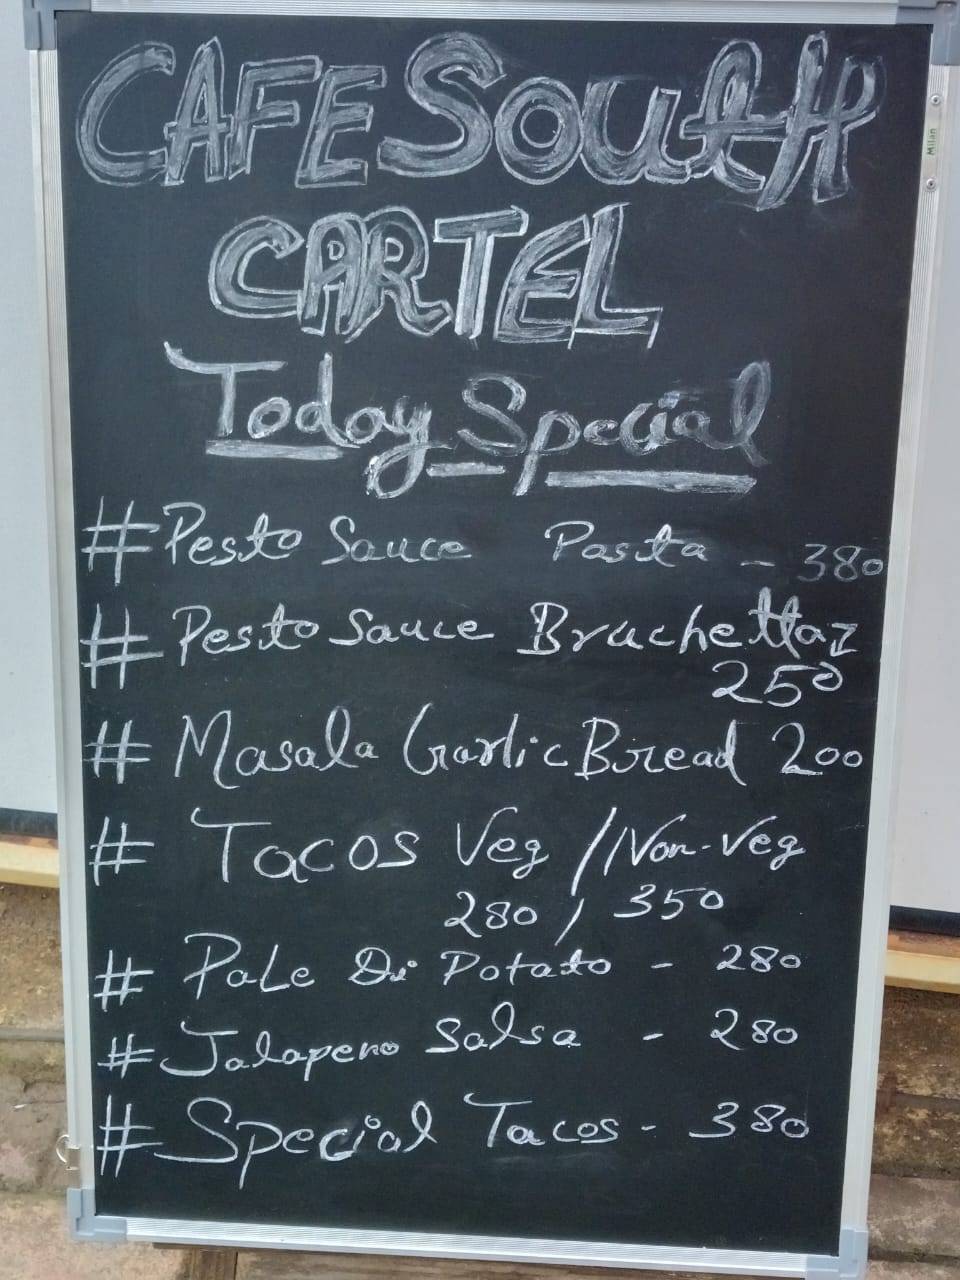 CAFE SOUTH
CARTEL
Today Special
# Pesto Sauce Pasta - 380
# Pesto Sauce Bruchetta
250
# Masala Garlic Bread 200
# TACOS Veg / Non-Veg
280 / 350
# PaLe Di Potato - 280
# Jalapeno Salsa - 280
# Special Tacos - 380
Milan